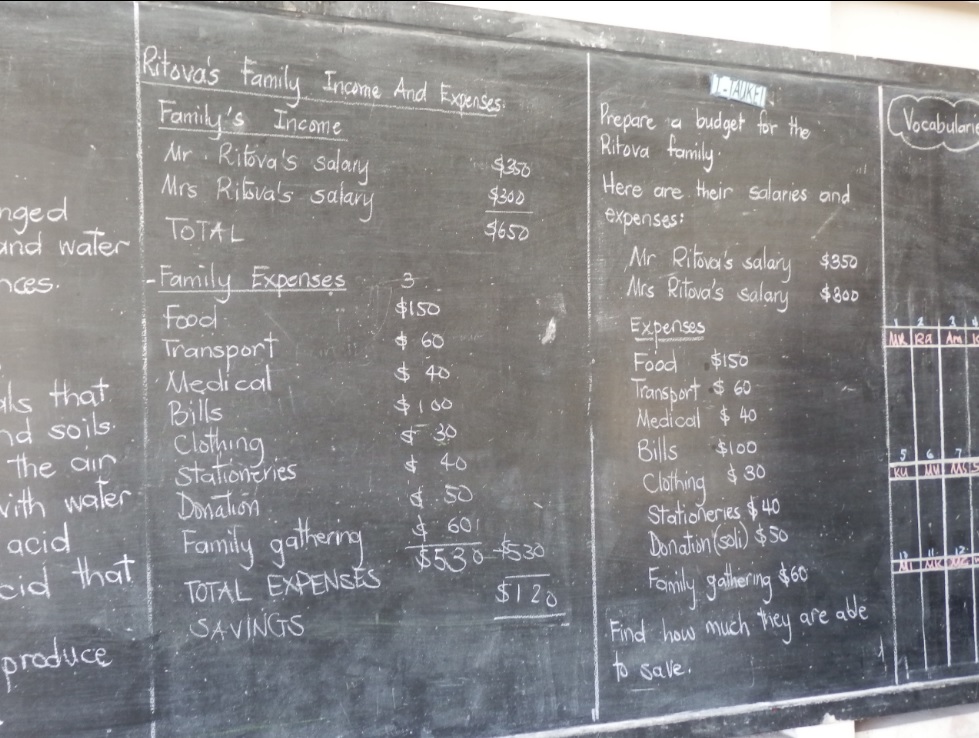 nged
and water
nces.
als that
nd soils.
the air
with water
acid
cid that
produce
Ritova's Family Income And Expenses.
Family's Income
Mr. Ritova's salary $350
Mrs Ritova's salary $300
TOTAL $650
- Family Expenses 3
Food $150
Transport $ 60
Medical $ 40
Bills $100
Clothing $ 30
Stationeries $ 40
Donation $ 50
Family gathering $ 60
TOTAL EXPENSES $530 -$530
SAVINGS $120
Prepare a budget for the
Ritova family.
Here are their salaries and
expenses:
Mr Ritova's salary $350
Mrs Ritova's salary $300
Expenses
Food $150
Transport $ 60
Medical $ 40
Bills $100
Clothing $ 30
Stationeries $40
Donation (soli) $50
Family gathering $60
Find how much they are able
to save.
Vocabularie
1 2 3 4
RA Am
5 6 7